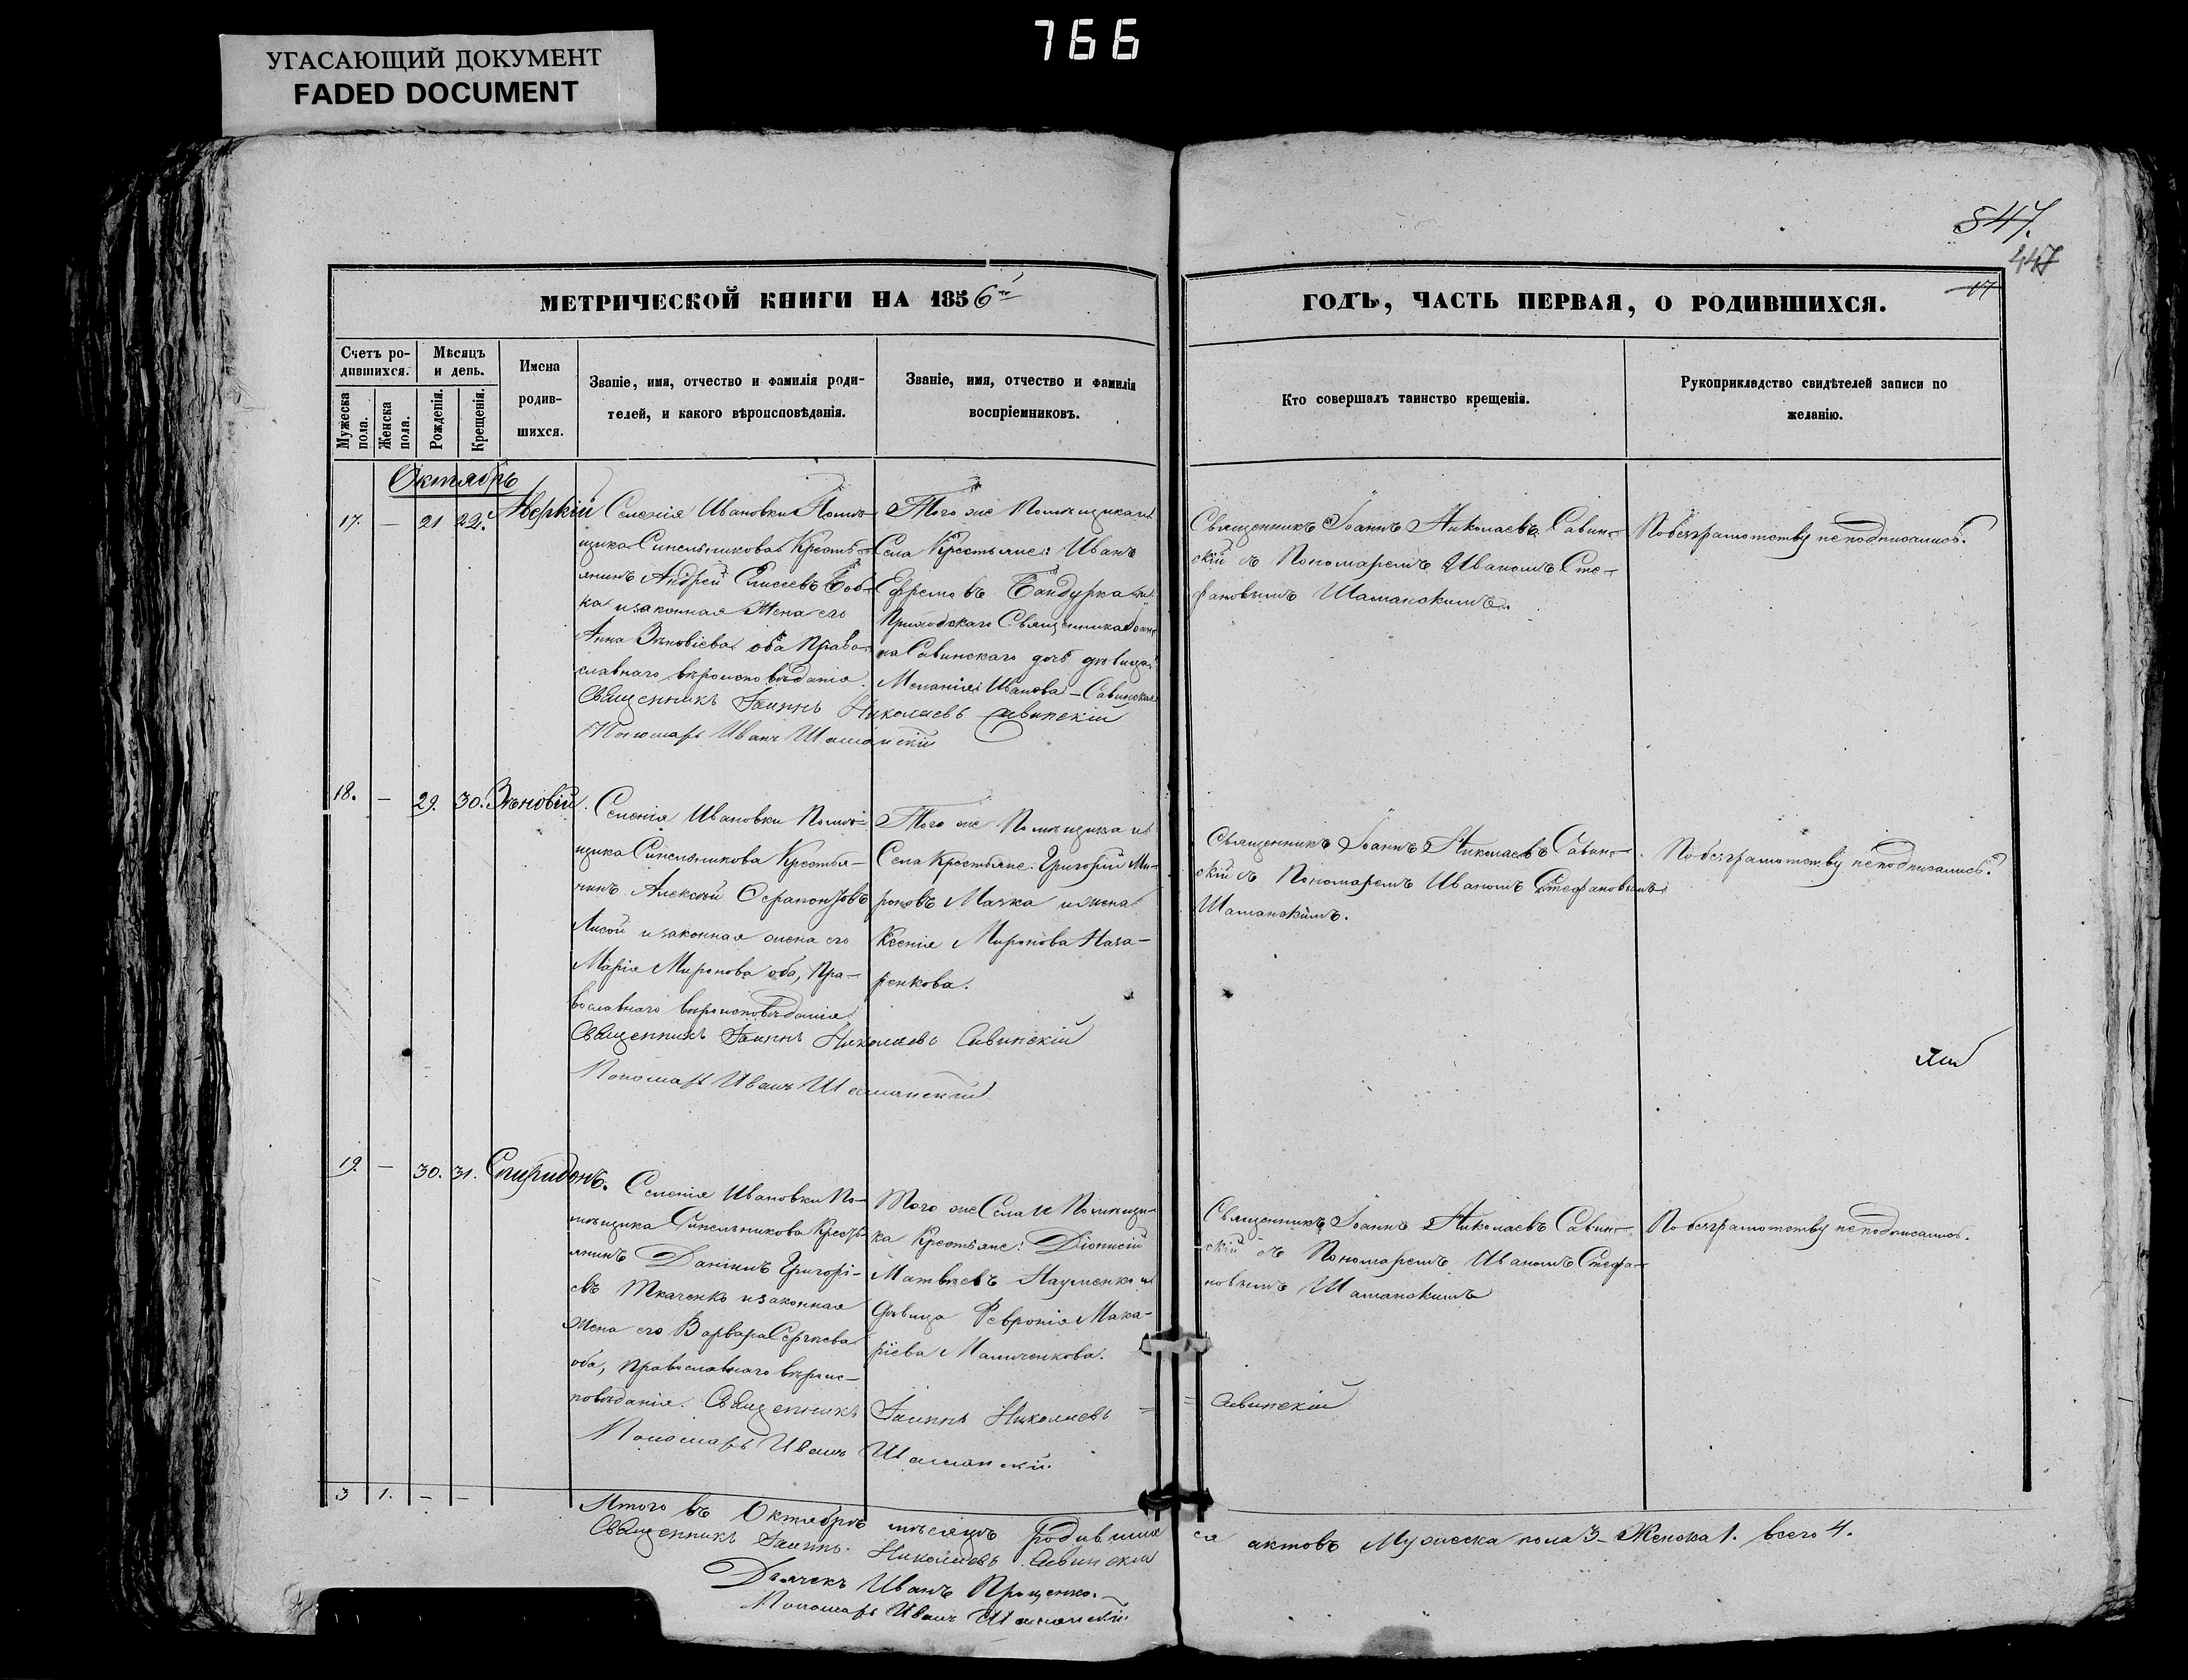 766
УГАСАЮЩИЙ ДОКУМЕНТ
FADED DOCUMENT
547.
447
17
МЕТРИЧЕСКОЙ КНИГИ НА 1856
ГОДЪ, ЧАСТЬ ПЕРВАЯ, О РОДИВШИХСЯ.
Счетъ ро-
дившихся.
Мужеска
пола.
Женска
пола.
Мѣсяцъ
и день.
Рожденія.
Крещенія.
Имена
родив-
шихся.
Званіе, имя, отчество и фамилія роди-
телей, и какого вѣроисповѣданія.
Званіе, имя, отчество и фамилія
воспріемниковъ.
Кто совершалъ таинство крещенія.
Рукоприкладство свидѣтелей записи по
желанію.
Октябрь
17. — 21 22. Аверкій
Селенія Ивановки Помѣ-
щика Синельникова Кресть-
янинъ Андрей Елисеевъ Боб-
ка и законная Жена его
Анна Зѣновіева оба Право-
славнаго вѣроисповѣданія.
Того же Помѣщика и
Села Крестьяне: Иванъ
Ефремовъ Бандурка и
Приходскаго Священника Іоан-
на Савинскаго дочь дѣвица
Меланія Иванова - Савинская
Священникъ Іоаннъ Николаевъ Савинскій
Пономарь Иванъ Шаманскій
Священникъ Іоаннъ Николаевъ Савин-
скій съ Пономаремъ Иваномъ Сте-
фановымъ Шаманскимъ.
По безграмотству неподписались.
18. — 29. 30. Зѣновій.
Селенія Ивановки Помѣ-
щика Синельникова Крестья-
нинъ Алексѣй Ферапонтовъ
Лисой и законная жена его
Марія Миронова оба, Пра-
вославнаго вѣроисповѣданія
Того же Помѣщика и
Села Крестьяне: Григорій Ми-
роновъ Мачка и жена
Ксенія Миронова Наза-
ренкова.
Священникъ Іоаннъ Николаевъ Савинскій
Пономарь Иванъ Шаманскій
Священникъ Іоаннъ Николаевъ Савин-
скій съ Пономаремъ Иваномъ Стефановымъ
Шаманскимъ.
По безграмотству неподписались.
19. — 30. 31. Спиридонъ.
Селенія Ивановки По-
мѣщика Синельникова Кресть-
янинъ Даніилъ Григорі-
евъ Ткаченко и законная
жена его Варвара Сергѣева
оба, православнаго вѣроис-
повѣданія.
Того же Села и Помѣщи-
ка Крестьяне: Діонисій
Матвѣевъ Науменко и
дѣвица Февронія Мака-
ріева
Священникъ Іоаннъ Николаевъ = = Савинскій
Пономарь Иванъ Шаманскій.
Священникъ Іоаннъ Николаевъ Савин-
скій съ Пономаремъ Иваномъ Стефа-
новымъ Шаманскимъ
По безграмотству неподписались.
3 1. — —
Итого въ Октябрѣ мѣсяцѣ родивши ся актовъ Мужеска пола 3 - Женска 1. всего 4.
Священникъ Іоаннъ Николаевъ Савинскій
Дьячекъ Иванъ Проценко.
Пономарь Иванъ Шаманскій.